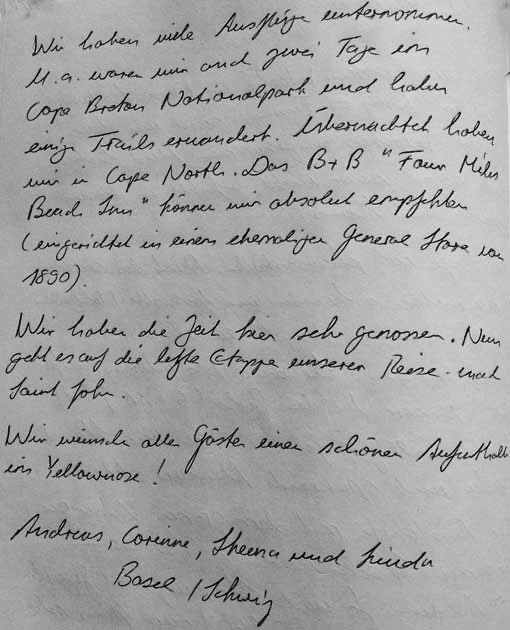 Wir haben viele Ausflüge unternommen.
U.a. waren wir auch zwei Tage im
Cape Breton Nationalpark und haben
einige Trails erwandert. Übernachtet haben
wir in Cape North. Das B+B "Four Miles
Beach Inn" können wir absolut empfehlen
(eingerichtet in einem ehemaligen General Store von
1890).
Wir haben die Zeit hier sehr genossen. Nun
geht es auf die letzte Etappe unserer Reise - nach
Saint John.
Wir wünschen allen Gästen einen schönen Aufenthalt
im Yellownose!
Andreas, Corinne, Sheena und Linda
Basel / Schweiz